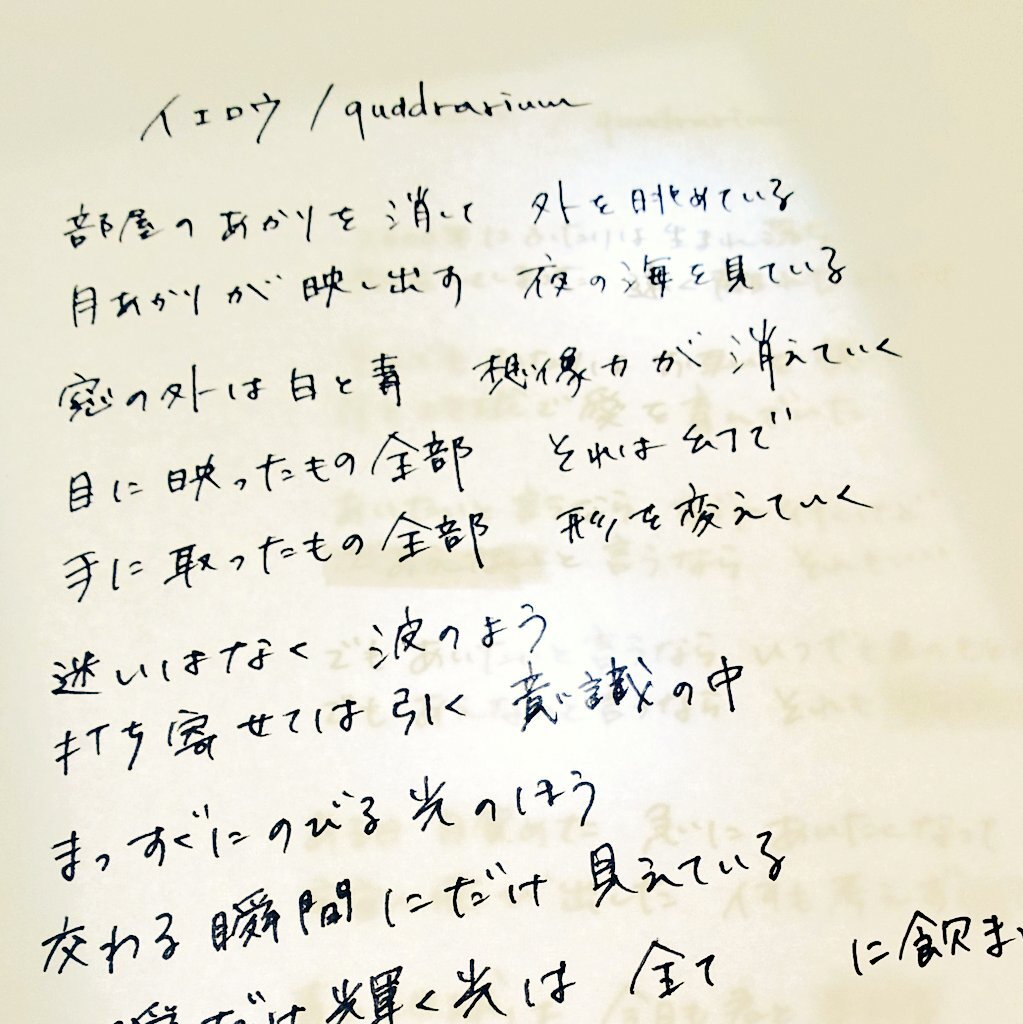 イエロウ / quddrarium
部屋のあかりを消して 外を眺めている
月あかりが映し出す 夜の海を見ている
窓の外は白と青 想像力が消えていく
目に映ったもの全部 それは幻で
手に取ったもの全部 形を変えていく
迷いはなく 波のよう
打ち寄せては引く 意識の中
まっすぐにのびる光のほう
交わる瞬間にだけ見えている
だけ輝く光は 全て に飲ま